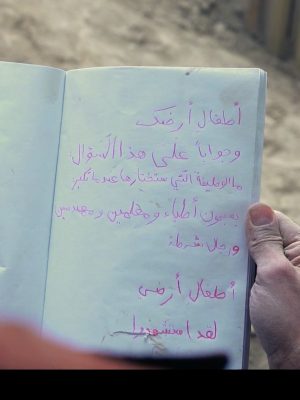 أطفال أرضك
وجواباً على هذا السؤال
ما الوظيفة التي ستختارها عندما تكبر
يجيبون أطباء ومعلمين ومهندسين
ورجال شرطة
أطفال أرضي
لقد استشهدوا